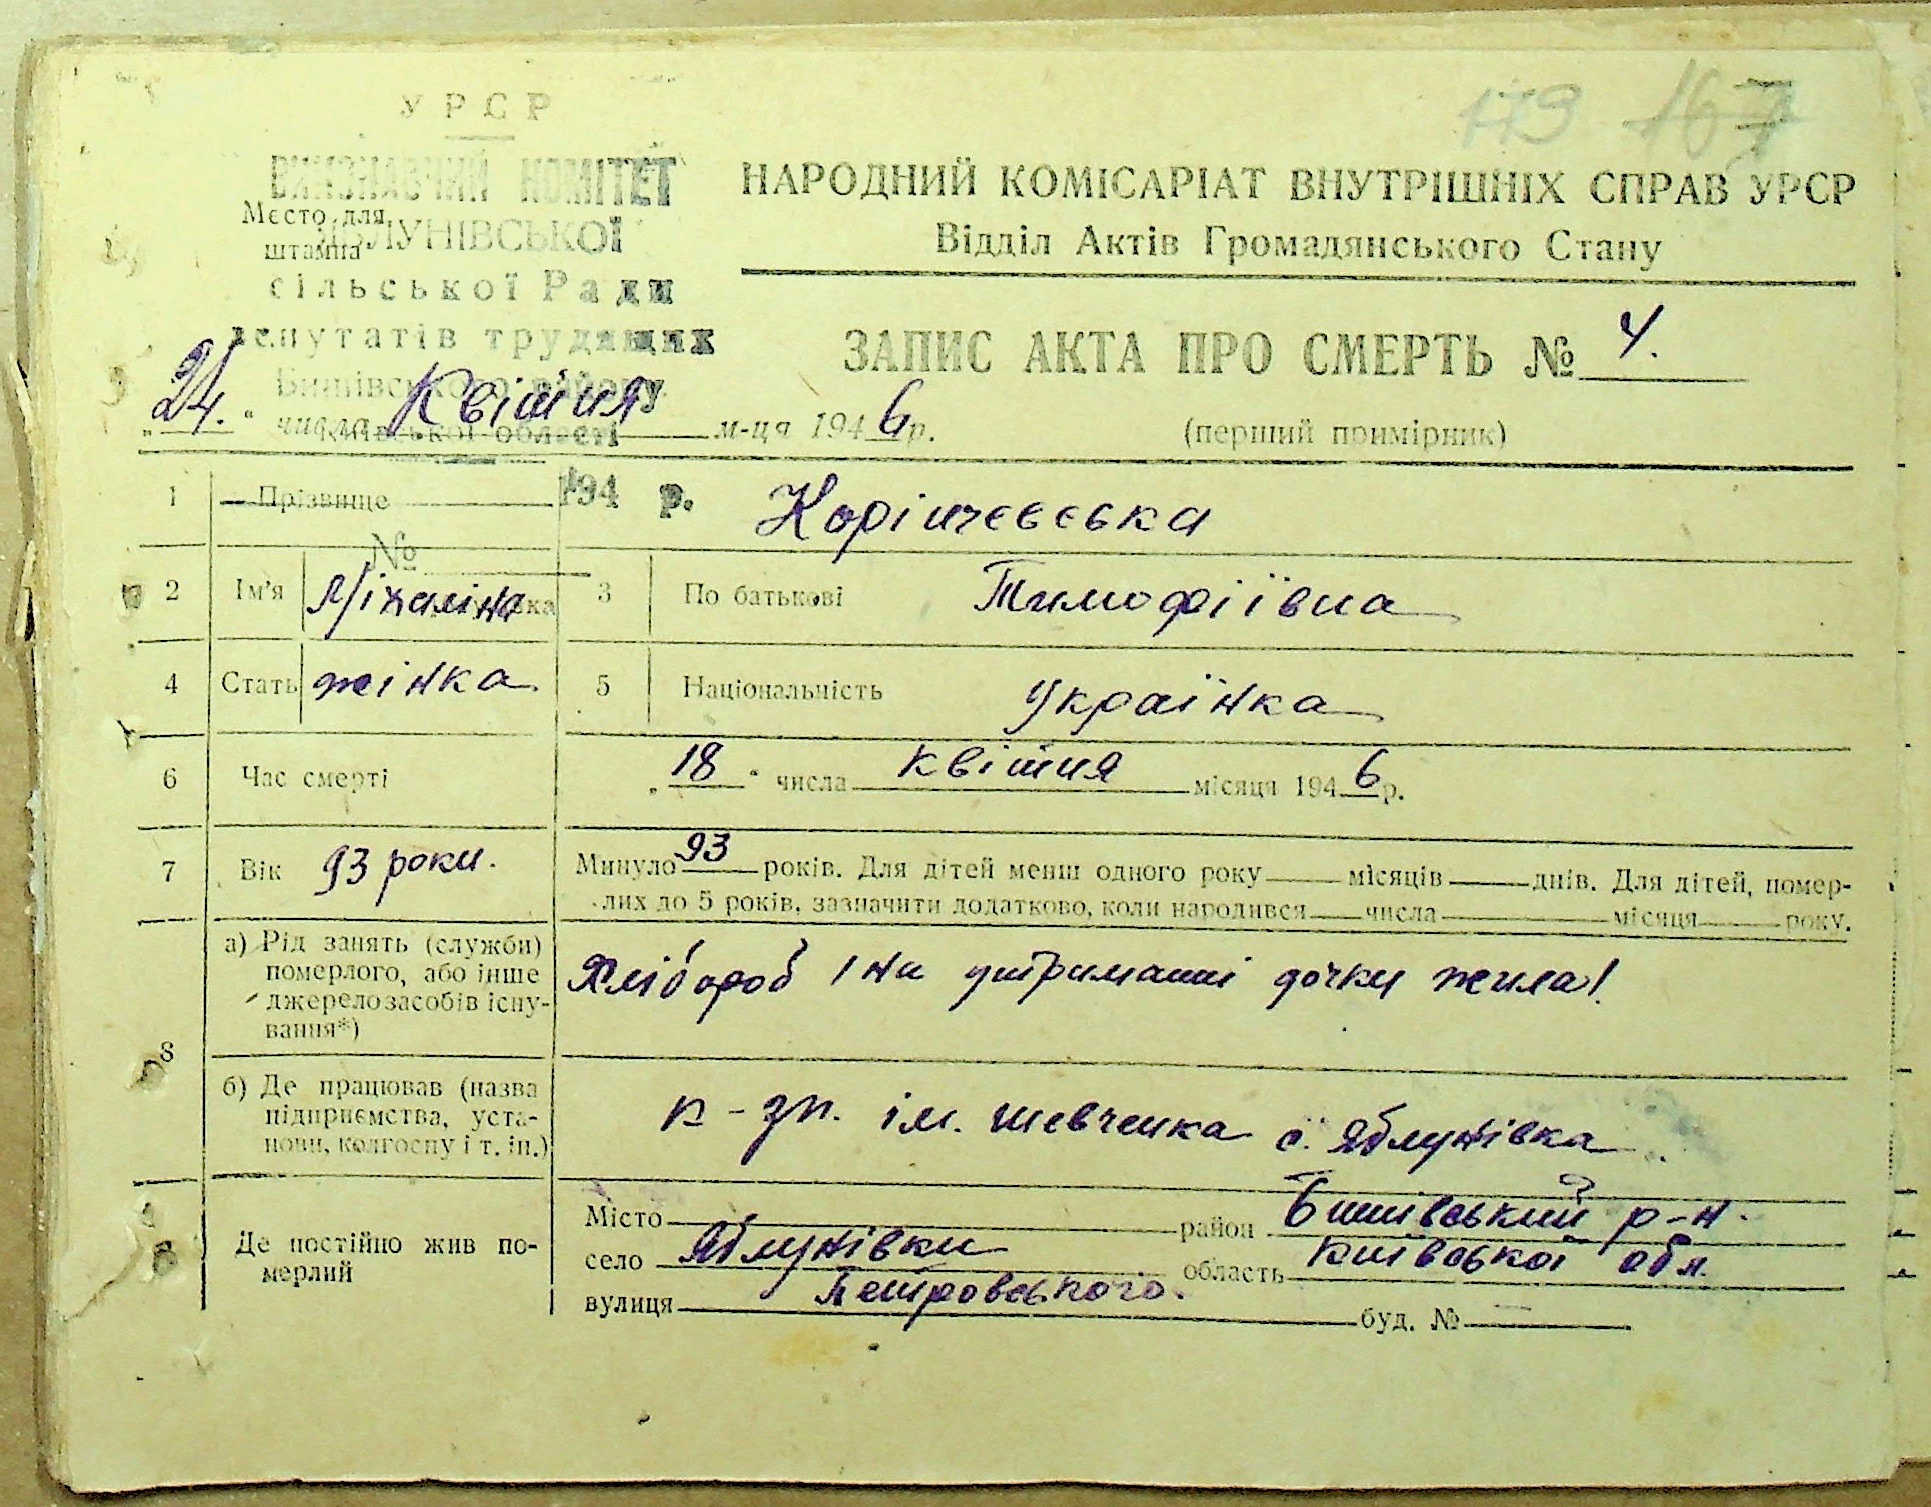 173 167
УРСР
ВИКОНАВЧИЙ КОМІТЕТ
ЯБЛУНІВСЬКОЇ
сільської Ради
депутатів трудящих
Бишівського району
Київської області
194 р.
№
Место для
штампа
НАРОДНИЙ КОМІСАРІАТ ВНУТРІШНІХ СПРАВ УРСР
Відділ Актів Громадянського Стану
ЗАПИС АКТА ПРО СМЕРТЬ № 4.
„24." числа Квітня м-ця 1946 р.
(перший примірник)
1 Прізвище Корінчевська
2 Ім'я Міхаліна 3 По батькові Тимофіївна
4 Стать жінка 5 Національність Українка
6 Час смерті „18" числа квітня місяця 1946 р.
7 Вік 93 роки. Минуло 93 років. Для дітей менш одного року місяців днів. Для дітей, помер-
лих до 5 років, зазначити додатково, коли народився числа місяця року.
8 а) Рід занять (служби)
померлого, або інше
джерело засобів існу-
вання*)
Хлібороб /на утриманні дочки жила/.
б) Де працював (назва
підприємства, уста-
нови, колгоспу і т. ін.)
к-зп. ім. Шевченка с. Яблунівка
Де постійно жив по-
мерлий
Місто район Бишівський р-н.
село Яблунівки область Київської обл.
вулиця Петровського. буд. №